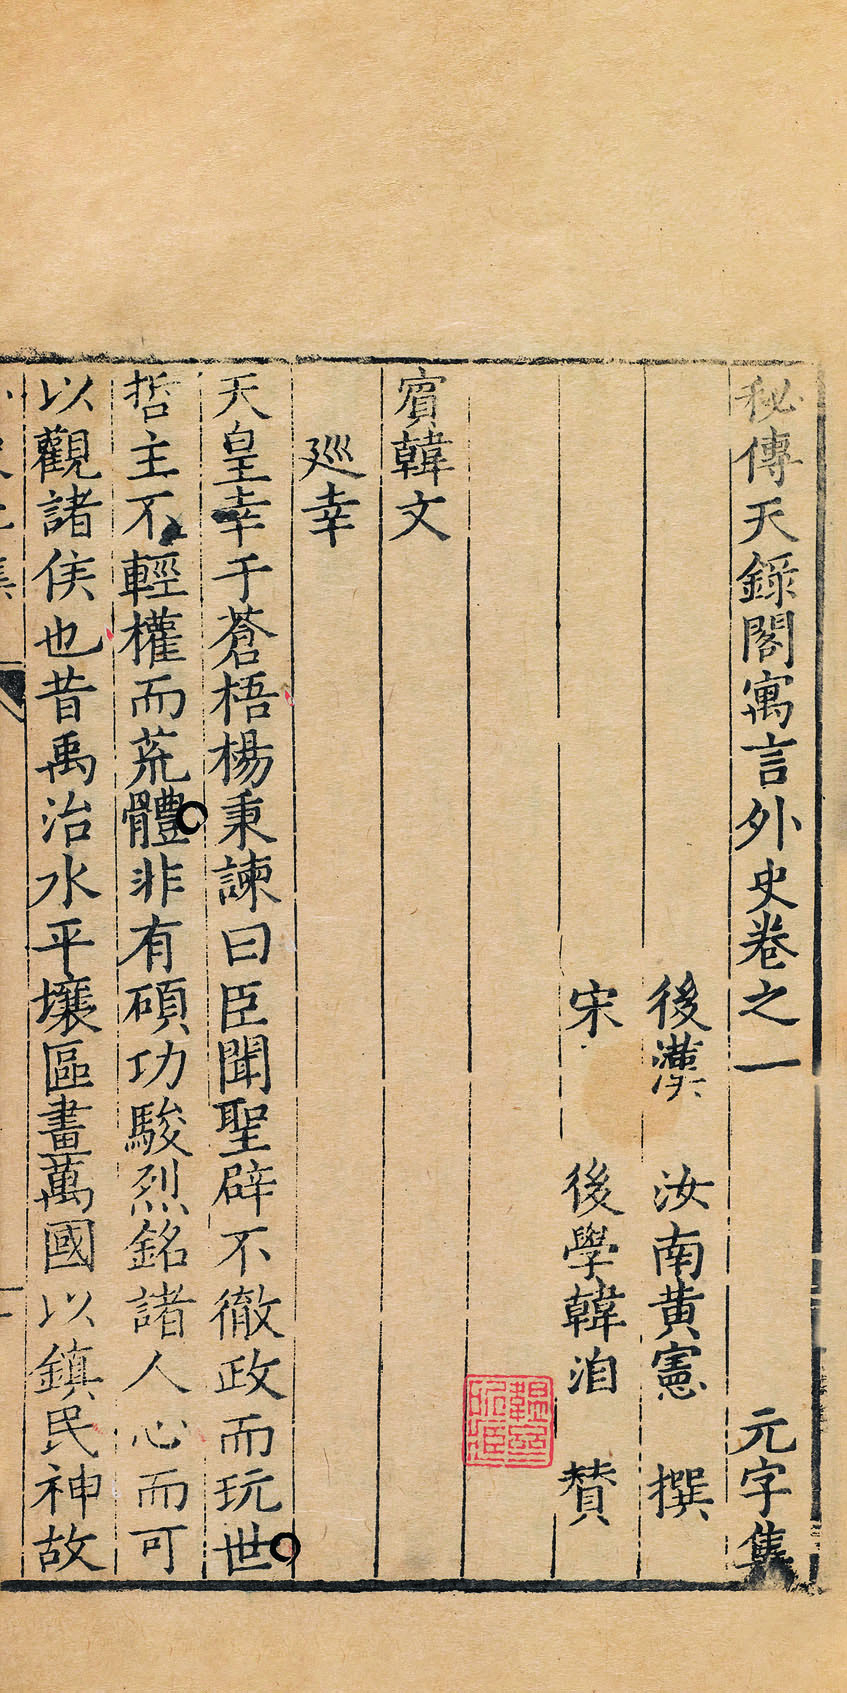 秘傳天錄閣寓言外史卷之一 元字集
後漢 汝南黃憲 撰
宋 後學韓洎 贊
賓韓文
巡幸
天皇幸于蒼梧楊秉諫曰臣聞聖辟不徹政而玩世
哲主不輕權而荒體非有碩功駿烈銘諸人心而可
以觀諸侯也昔禹治水平壤區畫萬國以鎮民神故